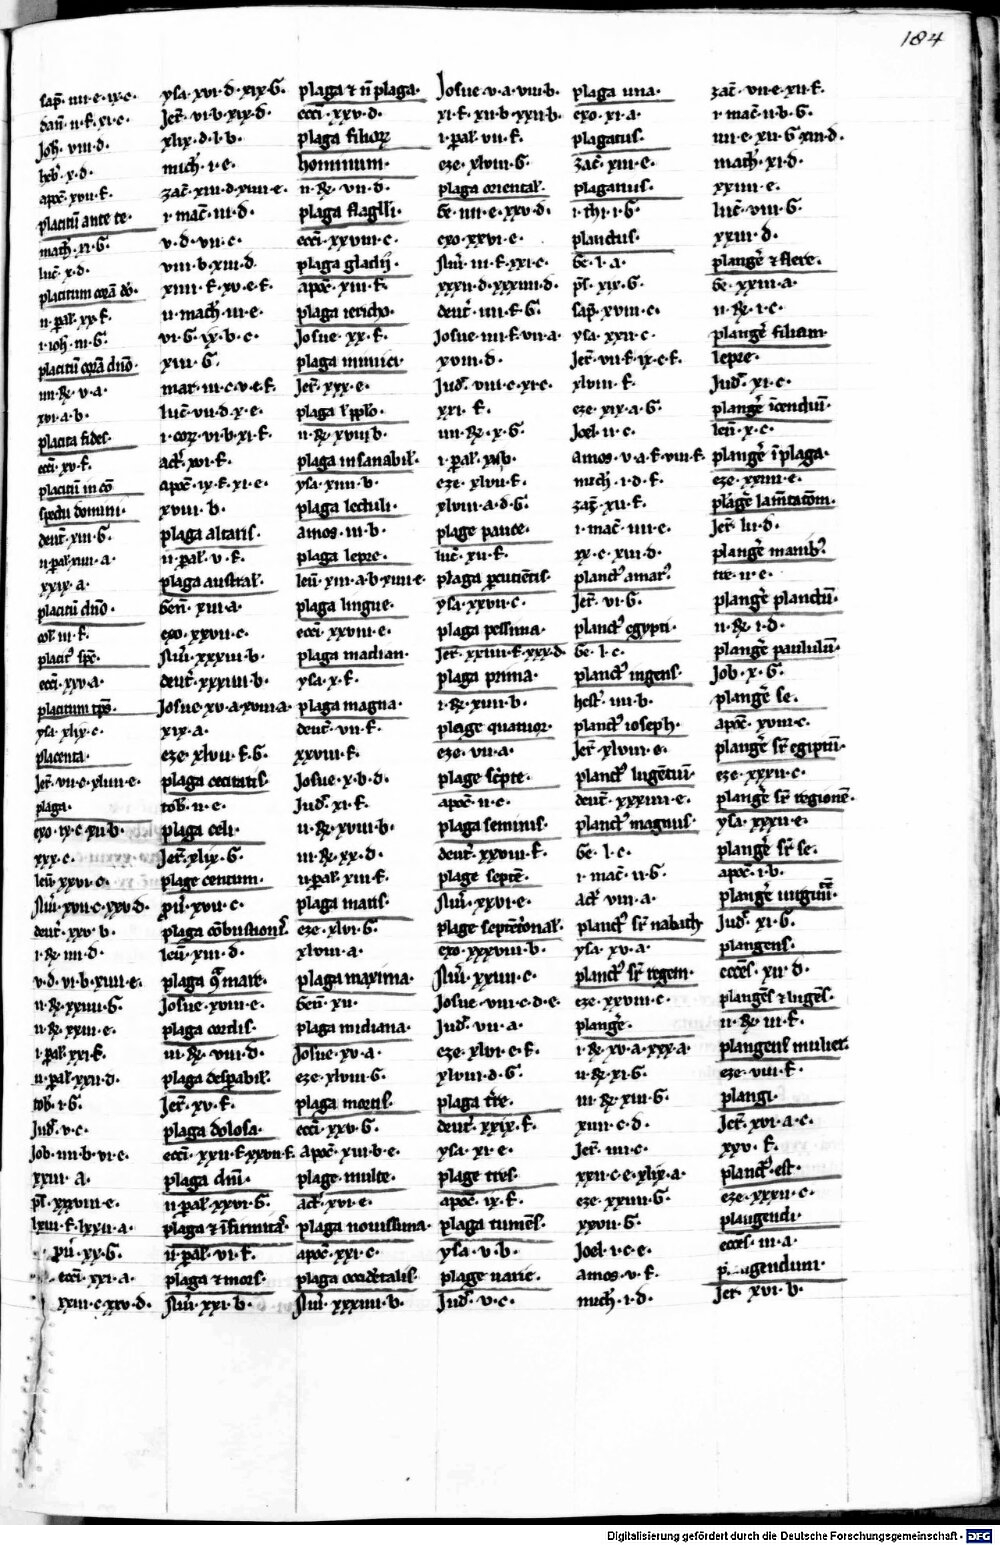 184
sap̄· iiii·e·ix·c·
dan̄· ii·f·xi·c·
Joh̄· viii·d·
heb̄· x·d·
apoc̄· xvii·f·
placitū ante te·
mach̄· xi·G·
luc̄· x·d·
placitum corā do·
ii·pal· xx·f·
i·ioh̄· iii·G·
placitū corā dn̄o·
iiii·Re· v·a·
xvi·a·b·
placita fides·
eccī· xv·f·
placitū in cō
spectu domini·
deut̄· xiii·G·
ii·pal· iiii·a·
xxix·a·
placitū dn̄o·
col· iii·f·
eccī· xxv·a·
placitum tp̄s·
ysa· xlix·c·
placenta·
Jer̄· vii·e·xliiii·e·
plaga·
exo· ix·c·xii·b·
xxx·c·
leu̅· xxvi·c·
Nu̅i· xvii·c·xxv·d·
deut̄· xxv·b·
i·Re· iiii·d·
v·d·vi·b·xiiii·e·
ii·Re· xxiiii·G·
ii·Re· xxiii·e·
i·pal· xxi·f·
ii·pal· xxii·d·
tob̄· i·G·
Jud̄· v·c·
Job· iiii·b·vi·c·
xxiii·a·
ps̄· xxxviii·e·
lxiii·f·lxxii·a·
xx·G·
eccī· xxi·a·
xxiii·c·xxv·d·
ysa· xvi·d·xix·G·
Jer̄· vi·b·xix·d·
xlix·d·l·b·
mich̄· i·e·
zac̄· xiii·d·xiiii·e·
i·mac̄· iii·d·
v·d·vii·c·
viii·b·xiii·d·
xiiii·f·xv·e·f·
ii·mach̄· iii·e·
vi·G·ix·b·c·
xiii·G·
mar· iii·c·v·e·f·
luc̄· vii·d·x·e·
i·cor· vi·b·xi·f·
act̄· xvi·f·
apoc̄· ix·f·xi·e·
xviii·b·
plaga altaris·
ii·pal· v·f·
plaga austral·
Gen̄· xiii·a·
exo· xxvii·c·
Nu̅i· xxxiii·b·
deut̄· xxxiiii·b·
Josue· xv·a·xviii·a·
xix·a·
eze· xlvii·f·G·
plaga cecitatis·
tob̄· ii·e·
plaga celi·
Jer̄· xlix·G·
plage centum·
pu̅· xvii·c·
plaga cōbustionis·
leu̅· xiii·d·
Josue· xviii·e·
plaga cordis·
iii·Re· viii·d·
plaga despabil·
Jer̄· xv·f·
plaga dolosa·
eccī· xxii·f·xxvii·f·
plaga dn̄i·
ii·pal· xxvi·G·
plaga & īfirmitas·
ii·pal· vi·f·
plaga & mors·
Nu̅i· xxi·b·
plaga & n̄ plaga·
eccī· xxv·d·
plaga filior
hominum·
ii·Re· vii·d·
plaga flagelli·
eccī· xxviii·c·
plaga gladij·
apoc̄· xiii·f·
plaga iericho·
Josue· xx·f·
plaga inimici·
Jer̄· xxx·e·
ii·Re· xviii·b·
plaga insanabil·
ysa· xiiii·b·
plaga lectuli·
amos· iii·b·
plaga lepre·
leu̅· xiii·a·b·xiiii·e·
plaga lingue·
eccī· xxviii·e·
plaga madian·
ysa· x·f·
plaga magna·
deut̄· vii·f·
xxviii·f·
Josue· x·b·d·
Jud̄· xi·f·
ii·Re· xviii·b·
iii·Re· xx·d·
ii·pal· xiii·f·
plaga maris·
eze· xlvi·G·
xlviii·a·
plaga maxima·
Gen̄· xii·
plaga midiana·
Josue· xv·a·
eze· xlviii·G·
plaga mortis·
eccī· xxv·G·
apoc̄· xiii·b·e·
plage multe·
act̄· xvi·e·
plaga nouissima·
apoc̄· xxi·c·
plaga occidētalis·
Nu̅i· xxxiiii·b·
Josue· v·a·viii·b·
xi·f·xii·b·xxii·b·
i·pal· vii·f·
eze· xlviii·G·
plaga oriental·
Ge· iiii·e·xxv·d·
exo· xxvi·e·
Nu̅i· iii·f·xxi·c·
xxxii·d·xxxiiii·d·
deut̄· iiii·f·G·
Josue· iiii·f·vii·a·
xviii·d·
Jud̄· viii·c·xi·c·
xxi·f·
iiii·Re· x·G·
eze· xlvii·f·
xlviii·a·d·G·
plage pauce·
luc̄· xii·f·
plaga pcutiētis·
ysa· xxvii·c·
plaga pessima·
Jer̄· xxiiii·f·xxx·d·
plaga prima·
i·Re· xiiii·b·
plage quatuor·
eze· vii·a·
plage sc̄pte·
apoc̄· ii·c·
plaga seminis·
deut̄· xxviii·f·
plage septē·
Nu̅i· xxvi·e·
plage septētrional·
exo· xxxviii·b·
Nu̅i· xxiiii·c·
Josue· viii·c·d·e·
Jud̄· vii·a·
eze· xlvi·e·f·
xlviii·d·G·
plaga tr̄e·
deut̄· xxix·f·
ysa· xi·e·
plage tres·
apoc̄· ix·f·
plaga tumēs·
ysa· v·b·
plage varie·
Jud̄· v·c·
plaga una·
exo· xi·a·
plagatus·
zac̄· xiii·e·
plaganus·
i·thi· i·G·
planctus·
Ge· l·a·
ps̄· xix·G·
sap̄· xviii·c·
ysa· xxii·c·
Jer̄· vii·f·ix·c·f·
xlviii·f·
eze· xix·a·G·
Joel· ii·c·
amos· v·a·f·viii·f·
mich̄· i·d·f·
zac̄· xii·f·
i·mac̄· iiii·e·
ix·c·xiii·d·
planct⁹ amar⁹·
Jer̄· vi·G·
planct⁹ egypti·
Ge· l·c·
planct⁹ ingens·
hest̄· iiii·b·
planct⁹ ioseph·
Jer̄· xlviii·e·
planct⁹ lugētiū·
deut̄· xxxiiii·e·
planct⁹ magnus·
Ge· l·c·
i·mac̄· ii·G·
act̄· viii·a·
planct⁹ sr̄ nabath
ysa· xv·a·
planct⁹ sr̄ regem·
eze· xxviii·c·
plangē·
i·Re· xv·a·xxx·a·
ii·Re· xi·G·
iii·Re· xiii·G·
xiiii·c·d·
Jer̄· iiii·c·
xxii·c·e·xlix·a·
eze· xxiiii·G·
xxvii·G·
Joel· i·c·e·
amos· v·f·
mich̄· i·d·
zac̄· vii·e·xii·f·
i·mac̄· ii·b·G·
iiii·e·xii·G·xiii·d·
mach̄· xi·d·
xxiiii·e·
luc̄· viii·G·
xxiii·d·
plangē & flere·
Ge· xxiii·a·
ii·Re· i·c·
plangē filiam·
lepte·
Jud̄· xi·c·
plangē īcendiū·
leu̅· x·c·
plangē ī plaga·
eze· xxiiii·e·
plāgē lamētatōm·
Jer̄· lii·d·
plangē manib⁹·
tre· ii·e·
plangē planctū·
ii·Re· i·d·
plangē paululū·
Job· x·G·
plangē se·
apoc̄· xviii·c·
plangē sr̄ egiptū·
eze· xxxii·c·
plangē sr̄ regionē·
ysa· xxxii·e·
plangē sr̄ se·
apoc̄· i·b·
Jud̄· xi·G·
plangens·
ecces̄· xii·d·
plangēs & lugēs·
ii·Re· iii·f·
plangens mulier·
eze· viii·f·
plangi·
Jer̄· xvi·a·c·
xxv·f·
planct⁹ est·
eze· xxxii·c·
plangendi·
ecces̄· iii·a·
Jer̄· xvi·b·
Digitalisierung gefördert durch die Deutsche Forschungsgemeinschaft - DFG